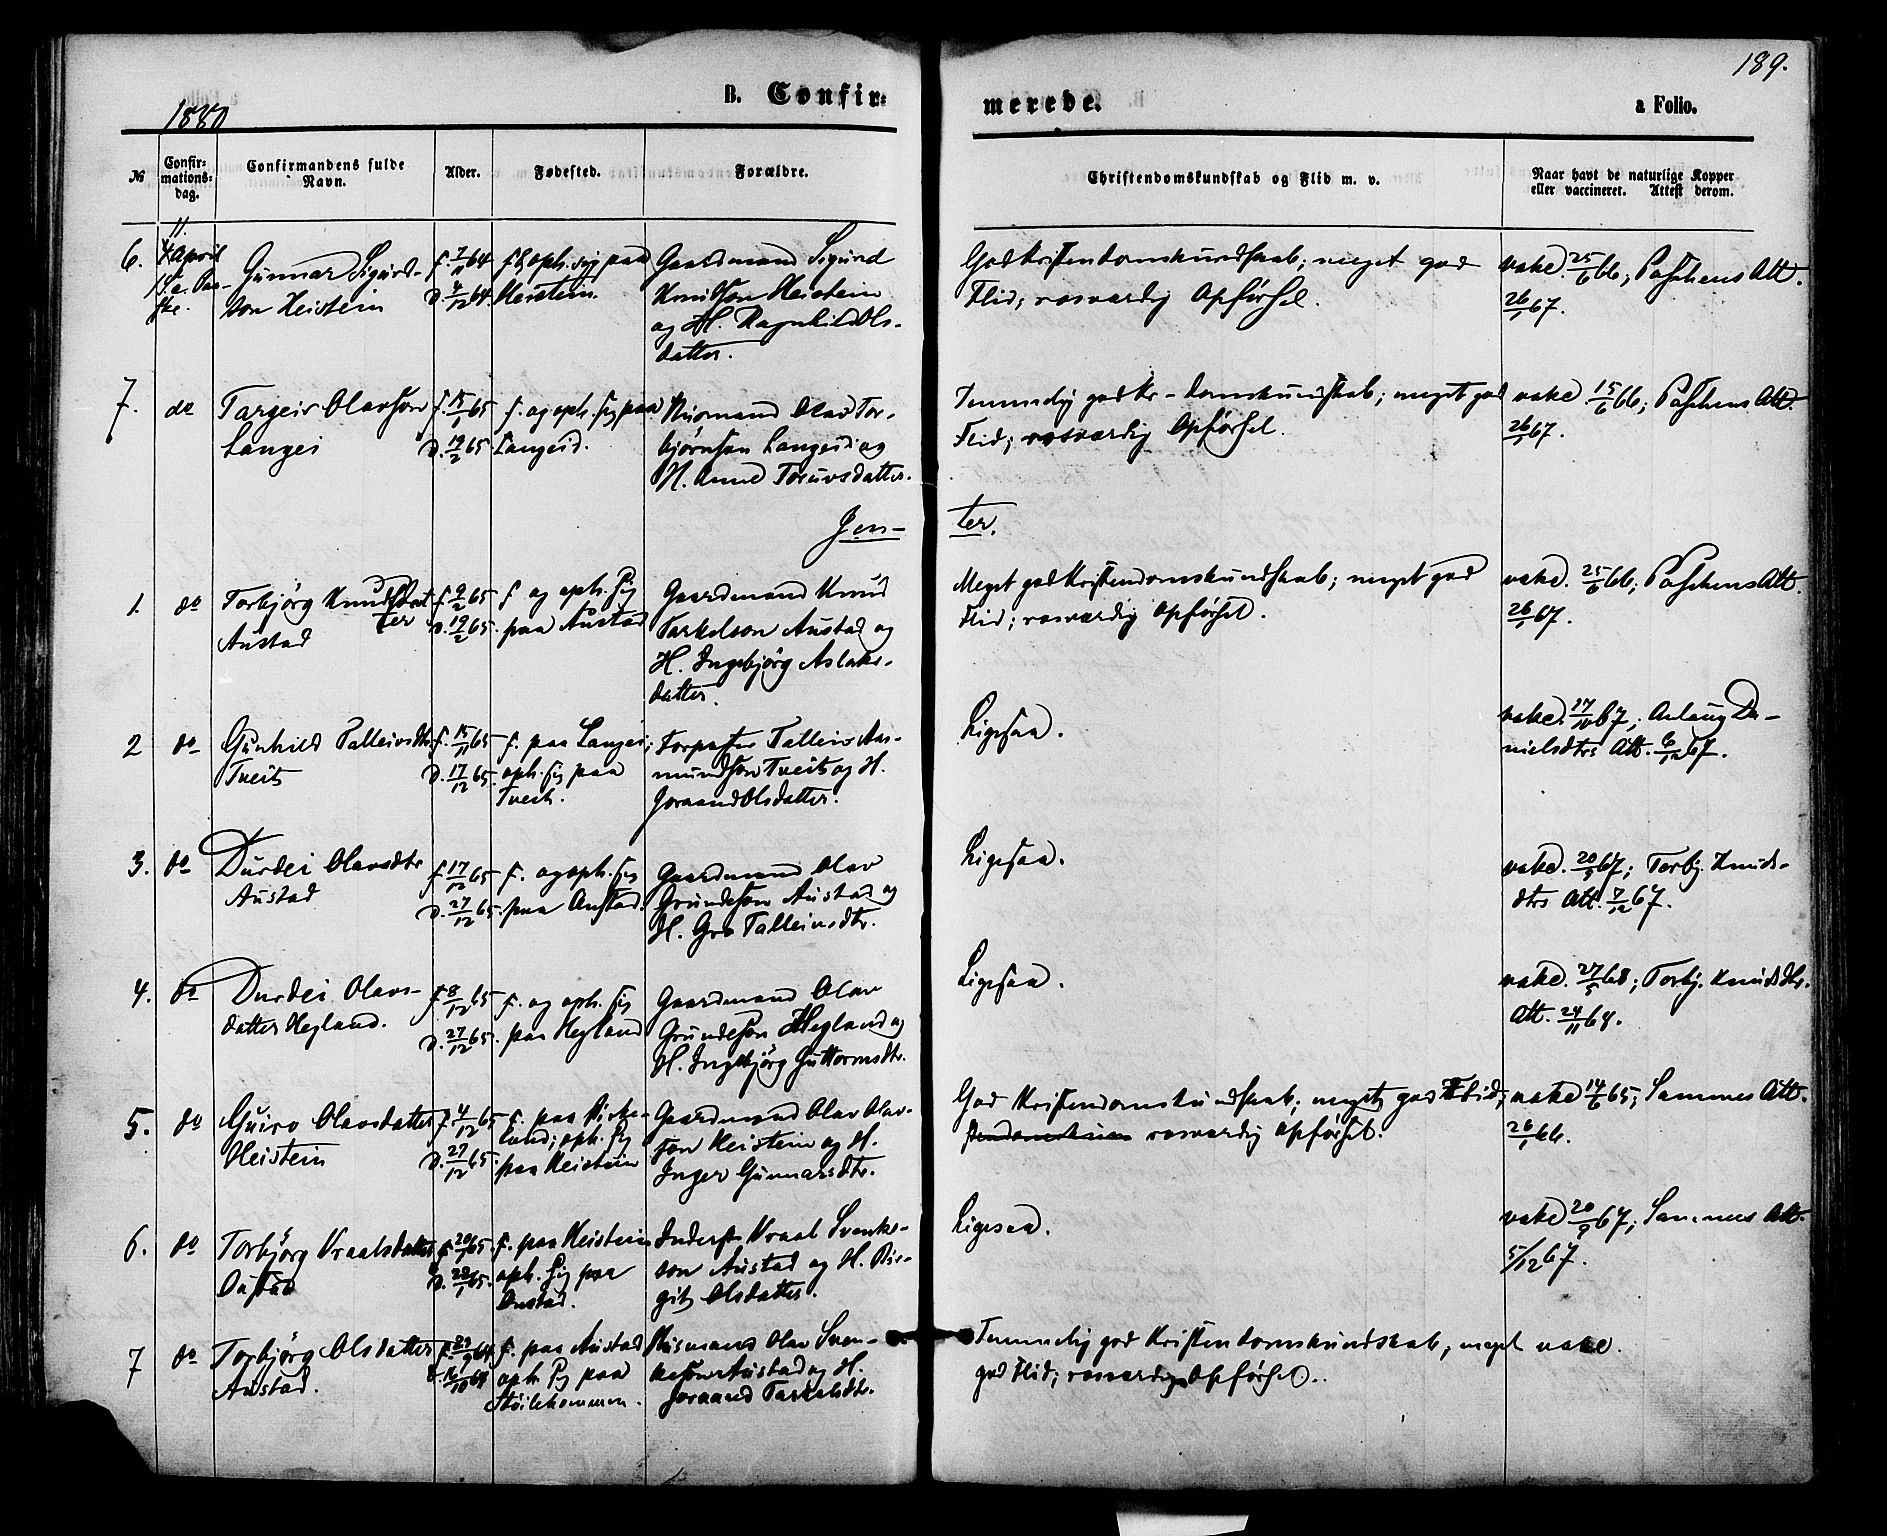 189.
1880
B. Confir-
merede.
a Folio.
№
Confir-
mations-
dag.
Confirmandens fulde
Navn.
Alder.
Fødested.
Forældre.
Christendomskundskab og Flid m. v.
Naar havt de naturlige Kopper
eller vaccineret. Attest derom.
6.
4 April
Gunnar Sigurd-
son Heistein
f. 7/11 64
d. 4/12 64.
f. & oph. sig paa
Heistein.
Gaardmand Sigurd
Knudson Heistein
og H. Ragnhild Ols-
datter.
God Kristendomskundskab; meget god
Flid; rosværdig Opførsel.
vake. 25/6 66; Paschens Att.
26/1 67.
7.
do
Targeir Olavson
Langei
f. 15/1 65
d. 19/2 65.
f. og oph. sig paa
Langeid.
Husmand Olav Tor-
bjørnson Langeid og
H. Anne Toruvsdatter.
Temmelig god Kr-domskundskab; meget god
Flid; rosværdig Opførsel.
vake 15/6 66; Paschens Att.
26/1 67.
Jen-
ter.
1.
do
Torbjörg Knudsdat
ter
Austad
f. 9/2 65
d. 19/2 65.
f og oph. sig
paa Austad
Gaardmand Knud
Tarkelson Austad og
H. Ingebjörg Aslaks-
datter.
Meget god Kristendomskundskab; meget god
Flid; rosværdig Opførsel.
vake. 25/6 66; Paschens Att.
26/1 67.
2
do
GunhildТалleivsdtr
Tveit
f. 15/11 65
d. 17/12 65.
f. paa Langei;
oph. sig paa
Tveit.
Torpaster Talleiv Aas-
mundson Tveit og H.
Joraand Olsdatter.
Ligesaa.
vake. 17/10 67; Anlaug Da-
nielsdtrs Att. 6/12 67.
3.
do
Durdei Olavsdtr
Austad
f. 17/12 65
d. 27/12 65.
f. og oph. sig
paa Austad.
Gaardmand Olav
Grundeson Austad og
H. Gro Talleivsdtr.
Ligesaa.
vake. 20/5 67; Torbj. Knuds-
dtrs Att. 7/12 67.
4.
do
Durdei Olavs-
datter Hegland.
f. 8/12 65
d. 27/12 65.
f. og oph. sig
paa Hegland
Gaardmand Olav
Grundeson Hegland og
H. Ingebjörg Guttormsdtr.
Ligesaa.
vake. 27/5 68; Torbj. Knudsdtr.
Att. 24/11 68.
5.
do
Guiro Olavsdatter
Heistein
f 4/12 65
d. 27/12 65.
f. paa Kirke-
lund; oph. sig
paa Heistein
Gaardmand Olav Olav-
son Heistein og H.
Inger Gunnarsdtr.
God Kristendomskundskab; meget god Flid;
rosværdig Opførsel.
vake 14/6 65; Sammes Att.
26/1 66.
6.
do
Torbjörg Vraalsdatter
Austad
f. 20/1 65.
d. 28/1 65.
f. paa Heistein
oph. sig paa
Austad.
Inderst Vraal Svenke-
son Austad og H. Bir-
git Olsdatter.
Ligesaa.
vake 20/9 67; Sammes Att.
5/12 67.
7
do
Torbjörg Olsdatter
Austad.
f. paa Austad
oph. sig paa
Husmand Olav Sven-
keson Austad og H.
Joraand Tarkelsdtr.
Temmelig god Kristendomskundskab, meget
god Flid; rosværdig Opførsel.
vake.